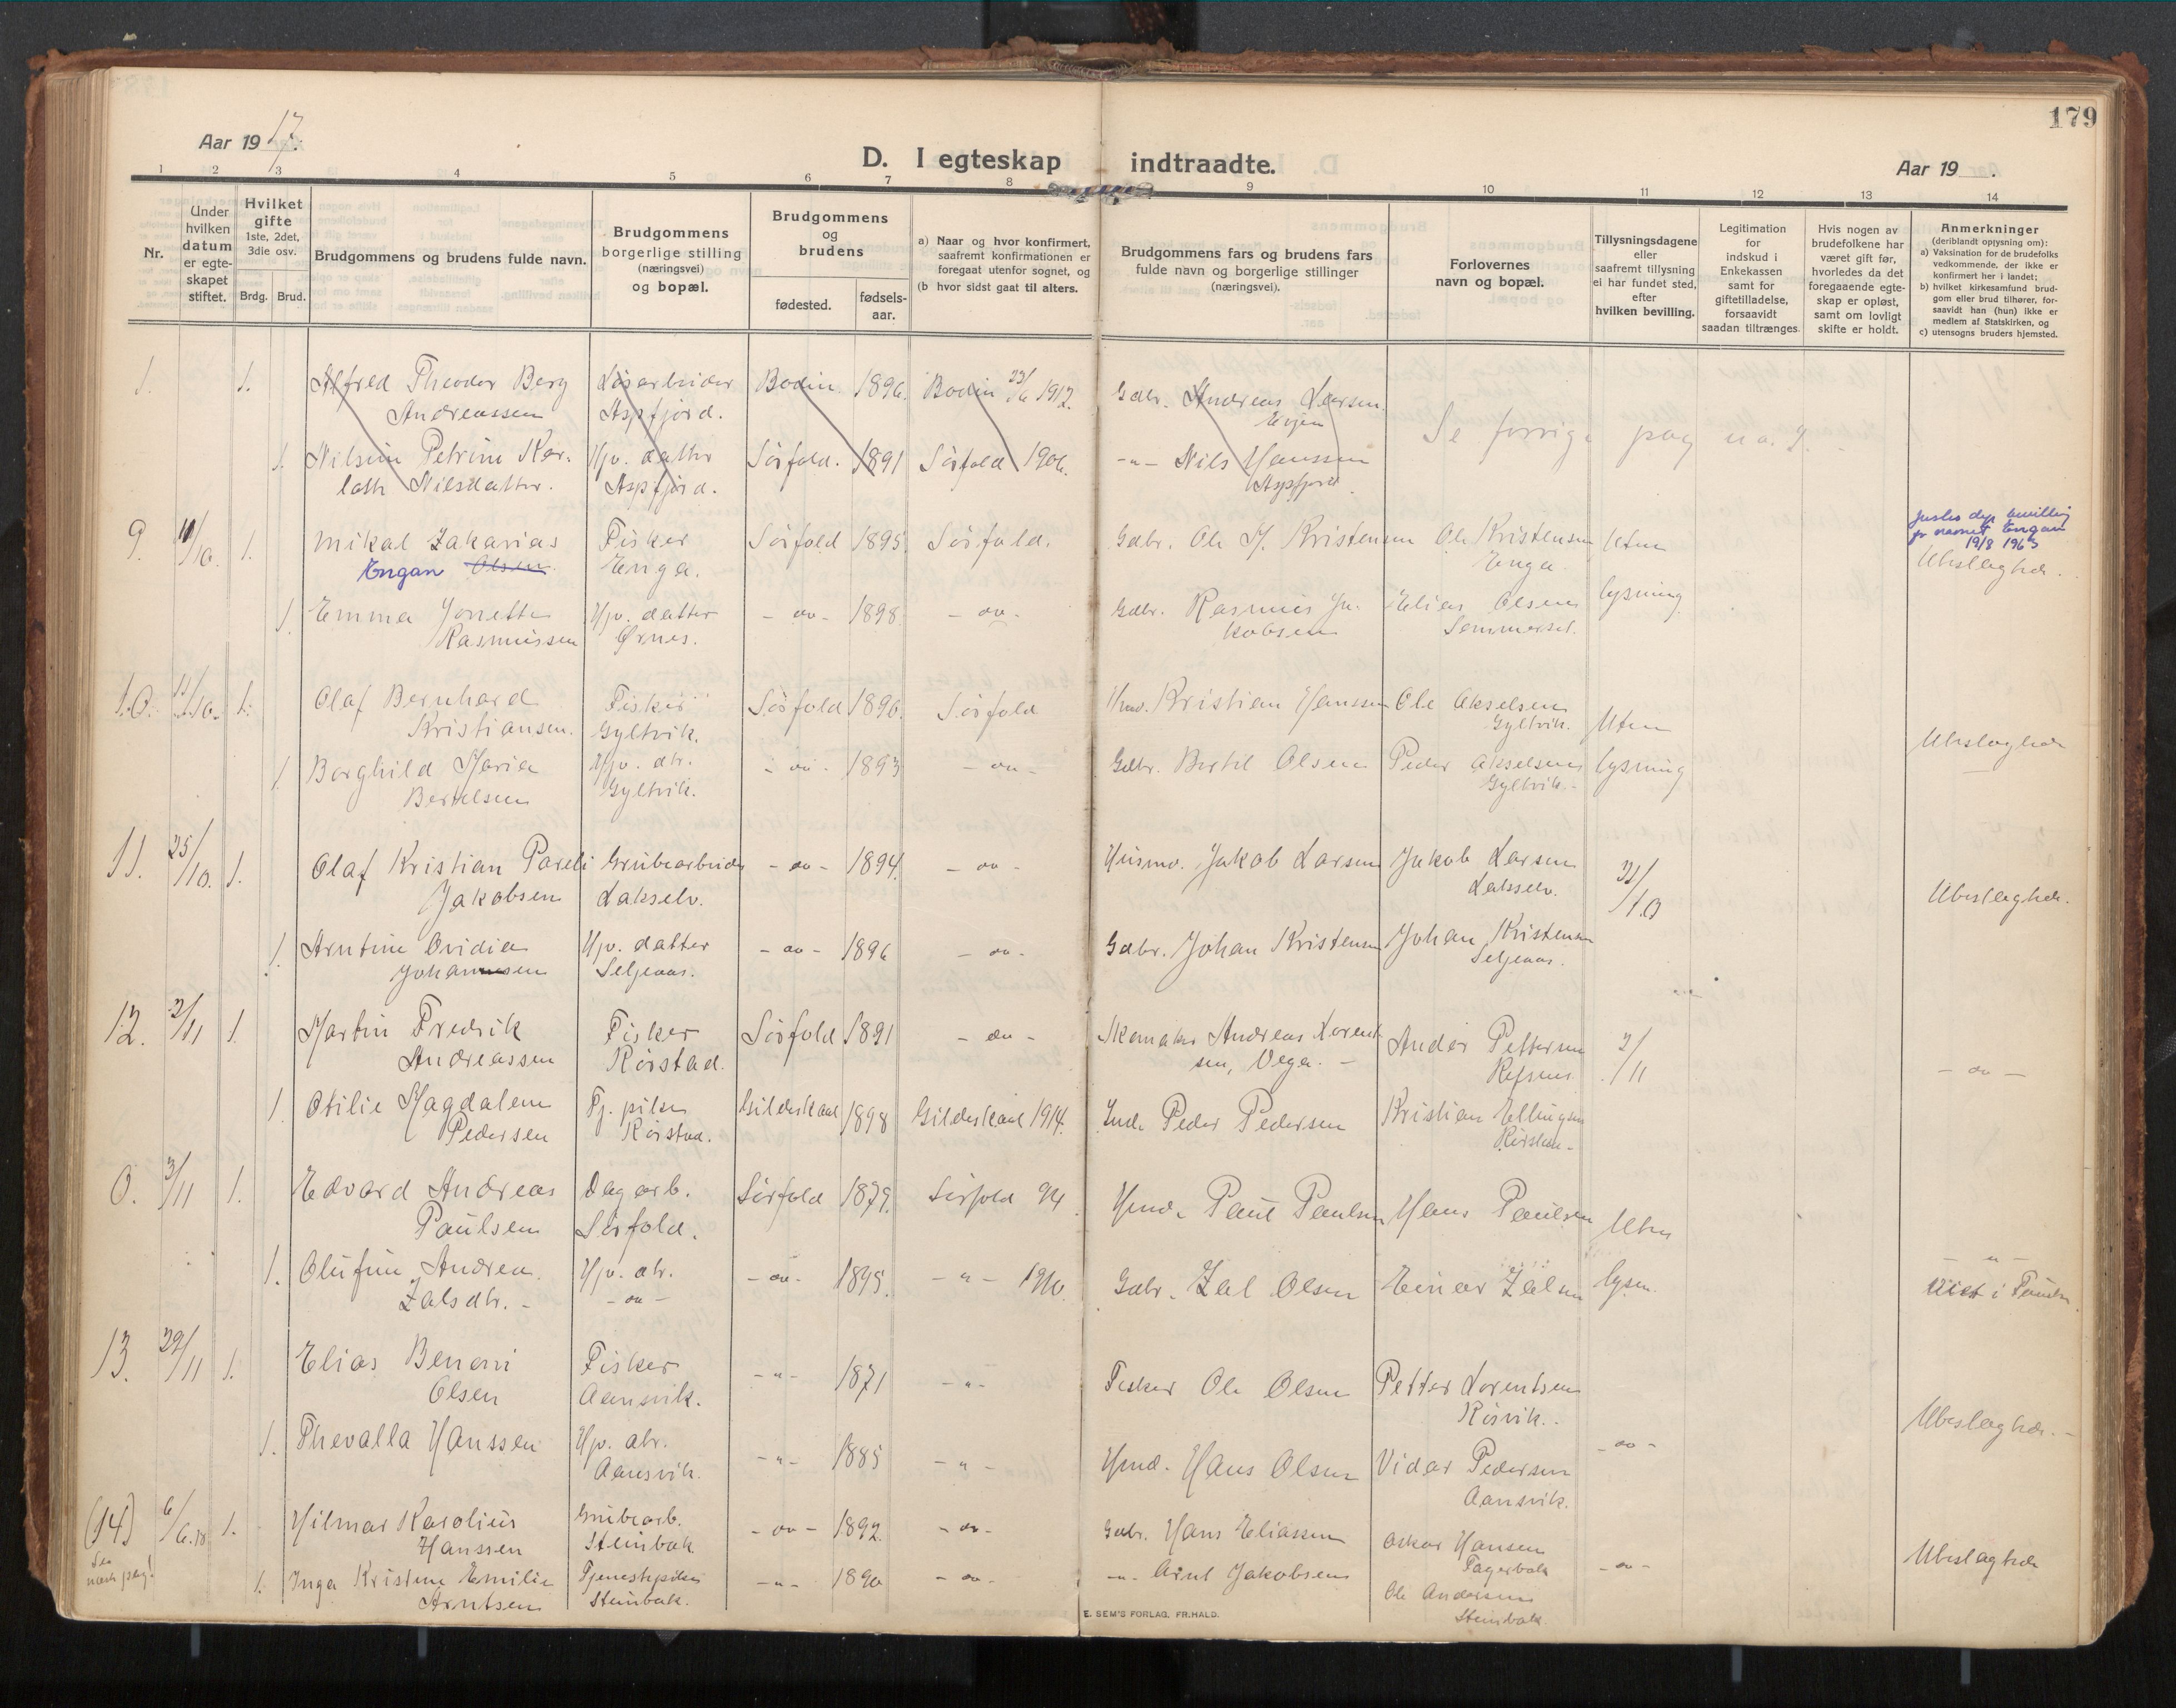 179
Aar 1917.
D. I egteskap indtraadte.
Aar 19 .
1 2 3 4 5 6 7 8 9 10 11 12 13 14
Nr.
Under hvilken datum er egteskapet stiftet.
Hvilket gifte 1ste, 2det, 3die osv.
Brdg. Brud.
Brudgommens og brudens fulde navn.
Brudgommens borgerlige stilling (næringsvei) og bopæl.
Brudgommens og brudens
fødested.
fødsels-aar.
a) Naar og hvor konfirmert, saafremt konfirmationen er foregaat utenfor sognet, og
(b hvor sidst gaat til alters.
Brudgommens fars og brudens fars fulde navn og borgerlige stillinger (næringsvei).
Forlovernes navn og bopæl.
Tillysningsdagene eller saafremt tillysning ei har fundet sted, efter hvilken bevilling.
Legitimation for indskud i Enkekassen samt for giftetilladelse, forsaavidt saadan tiltrænges.
Hvis nogen av brudefolkene har været gift før, hvorledes da det foregaaende egteskap er opløst, samt om lovligt skifte er holdt.
Anmerkninger
(deriblandt oplysning om):
a) Vaksination for de brudefolks vedkommende, der ikke er konfirmert her i landet;
b) hvilket kirkesamfund brudgom eller brud tilhører, forsaavidt han (hun) ikke er medlem af Statskirken, og
c) utensogns bruders hjemsted.
1. 1. Alfred Theodor Berg Løsarbeider Bodin. 1896. Bodin 23/6 1912. Gdbr. Andreas Larsen
Andreassen Aspfjord. Evjen
Se forrige pag no. 9
1. Nilsine Petrine Kar- Hjv. datter Sörfold. 1891 Sörfold 1906. -"- Nils Hanssen
loth Nilsdatter. Aspfjord. Aspfjord
9. 11/10. 1. Mikal Zakarias Fisker Sörfold 1895. Sörfold. Gdbr. Ole J. Kristensen Ole Kristensen Uten
Engan Olsen Enga. Enga.
Justis dep. bevilling
for navnet Engan
19/8 1963
Ubeslagtede.
1. Emma Jonette Hjv. datter - do - 1898. - do - Gdbr. Rasmus Ja- Elias Olsen lysning
Rasmussen Ørnes. kobsen Sommerset.
10. 1. Olaf Bernhard Fisker Sörfold 1896. Sörfold Kristian Hanssen Ole Akselsen
Kristiansen. Gyltvik. Gyltvik. Uten
Ubeslagtede
1. Borghild Maria Hjv. dtr. - do - 1893 - do - Gdbr. Bertel Olsen Peder Akselsen lysning
Bertelsen Gyltvik. Gyltvik.
11. 25/10. 1. Olaf Kristian Pareli Grubearbeider - do - 1894. - do - Husmd. Jakob Larsen Jakob Larsen
Jakobsen Lakselv. Lakselv.
Ubeslagtede.
1. Arntine Ovidia Hjv. datter - do - 1896 - do - Gdbr. Johan Kristensen Johan Kristensen
Johannsen Seljeaas. Seljeaas.
12. 2/11 1. Martin Fredrik Fisker Sörfold 1891 - do - Skomaker Andreas Lorent- Petterson 2/11
Andreassen Rörstad. sen, Vega. -
- do -
1. Otilie Magdalene Tj. pike Gildeskaal 1898 Gildeskaal 1914. Peder Pedersen Kristian Ellingsen
Pedersen Rörstad.
0. 3/11 1. Edvard Andreas Dagarb. Sörfold 1879. Sörfold 94 Paul Paulsen Hans Paulsen Uten
Paulsen Sörfold.
- " -
1. Olufine Andrea Hjv. dtr. - do - 1895. - " - 1910. Gdbr. Zal Olsen Einar Zalsen lysn.
Zalsdtr. - - do -
13. 29/11 1. Elias Benoni Fisker - " - 1871 - " - Fisker Ole Olsen Petter Lorentsen
Olsen Aansvik. Rösvik.
Ubeslagtede. -
- do -
1. Thevalla Hanssen Hjv. dtr. - " - 1885 - " - Hans Olsen Vidar Pedersen
Aansvik. Aansvik.
(14) 6/6.18 1. Hilmar Karolius Grubearb. - do - 1892. - do - Gdbr. Hans Eliassen Oskar Hansen
Hanssen Steinbak Fagerbak - do -
Se næste pag!
Ubeslagtede
1. Inga Kristine Emilie Tjenestepike - " - 1890 - do - - " - Arnt Jakobsen Ole Andersen
Arntsen Steinbak. Steinbak
E. SEM'S FORLAG, FR.HALD.